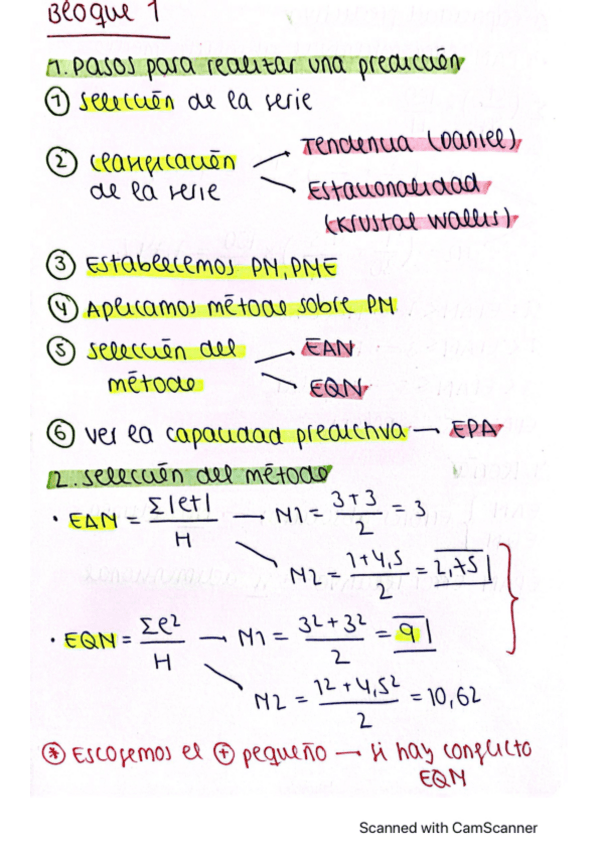 Bloque 1
1. Pasos para realizar una predicción
① Selección de la serie
② Clasificación de la serie
Tendencia (Daniel)
Estacionalidad (Kruskal Wallis)
③ Establecemos PN, PME
④ Aplicamos método sobre PN
⑤ Selección del método
EAN
EQN
⑥ Ver la capacidad predictiva → EPA
2. Selección del método
· EAN = Σ|et| / H → N1 = 3+3 / 2 = 3
N2 = 1+4,5 / 2 = 2,75
· EQN = Σe² / H → N1 = 3²+3² / 2 = 9
N2 = 1²+4,5² / 2 = 10,62
⊛ Escogemos el ⊕ pequeño → si hay conflicto EQN
Scanned with CamScanner